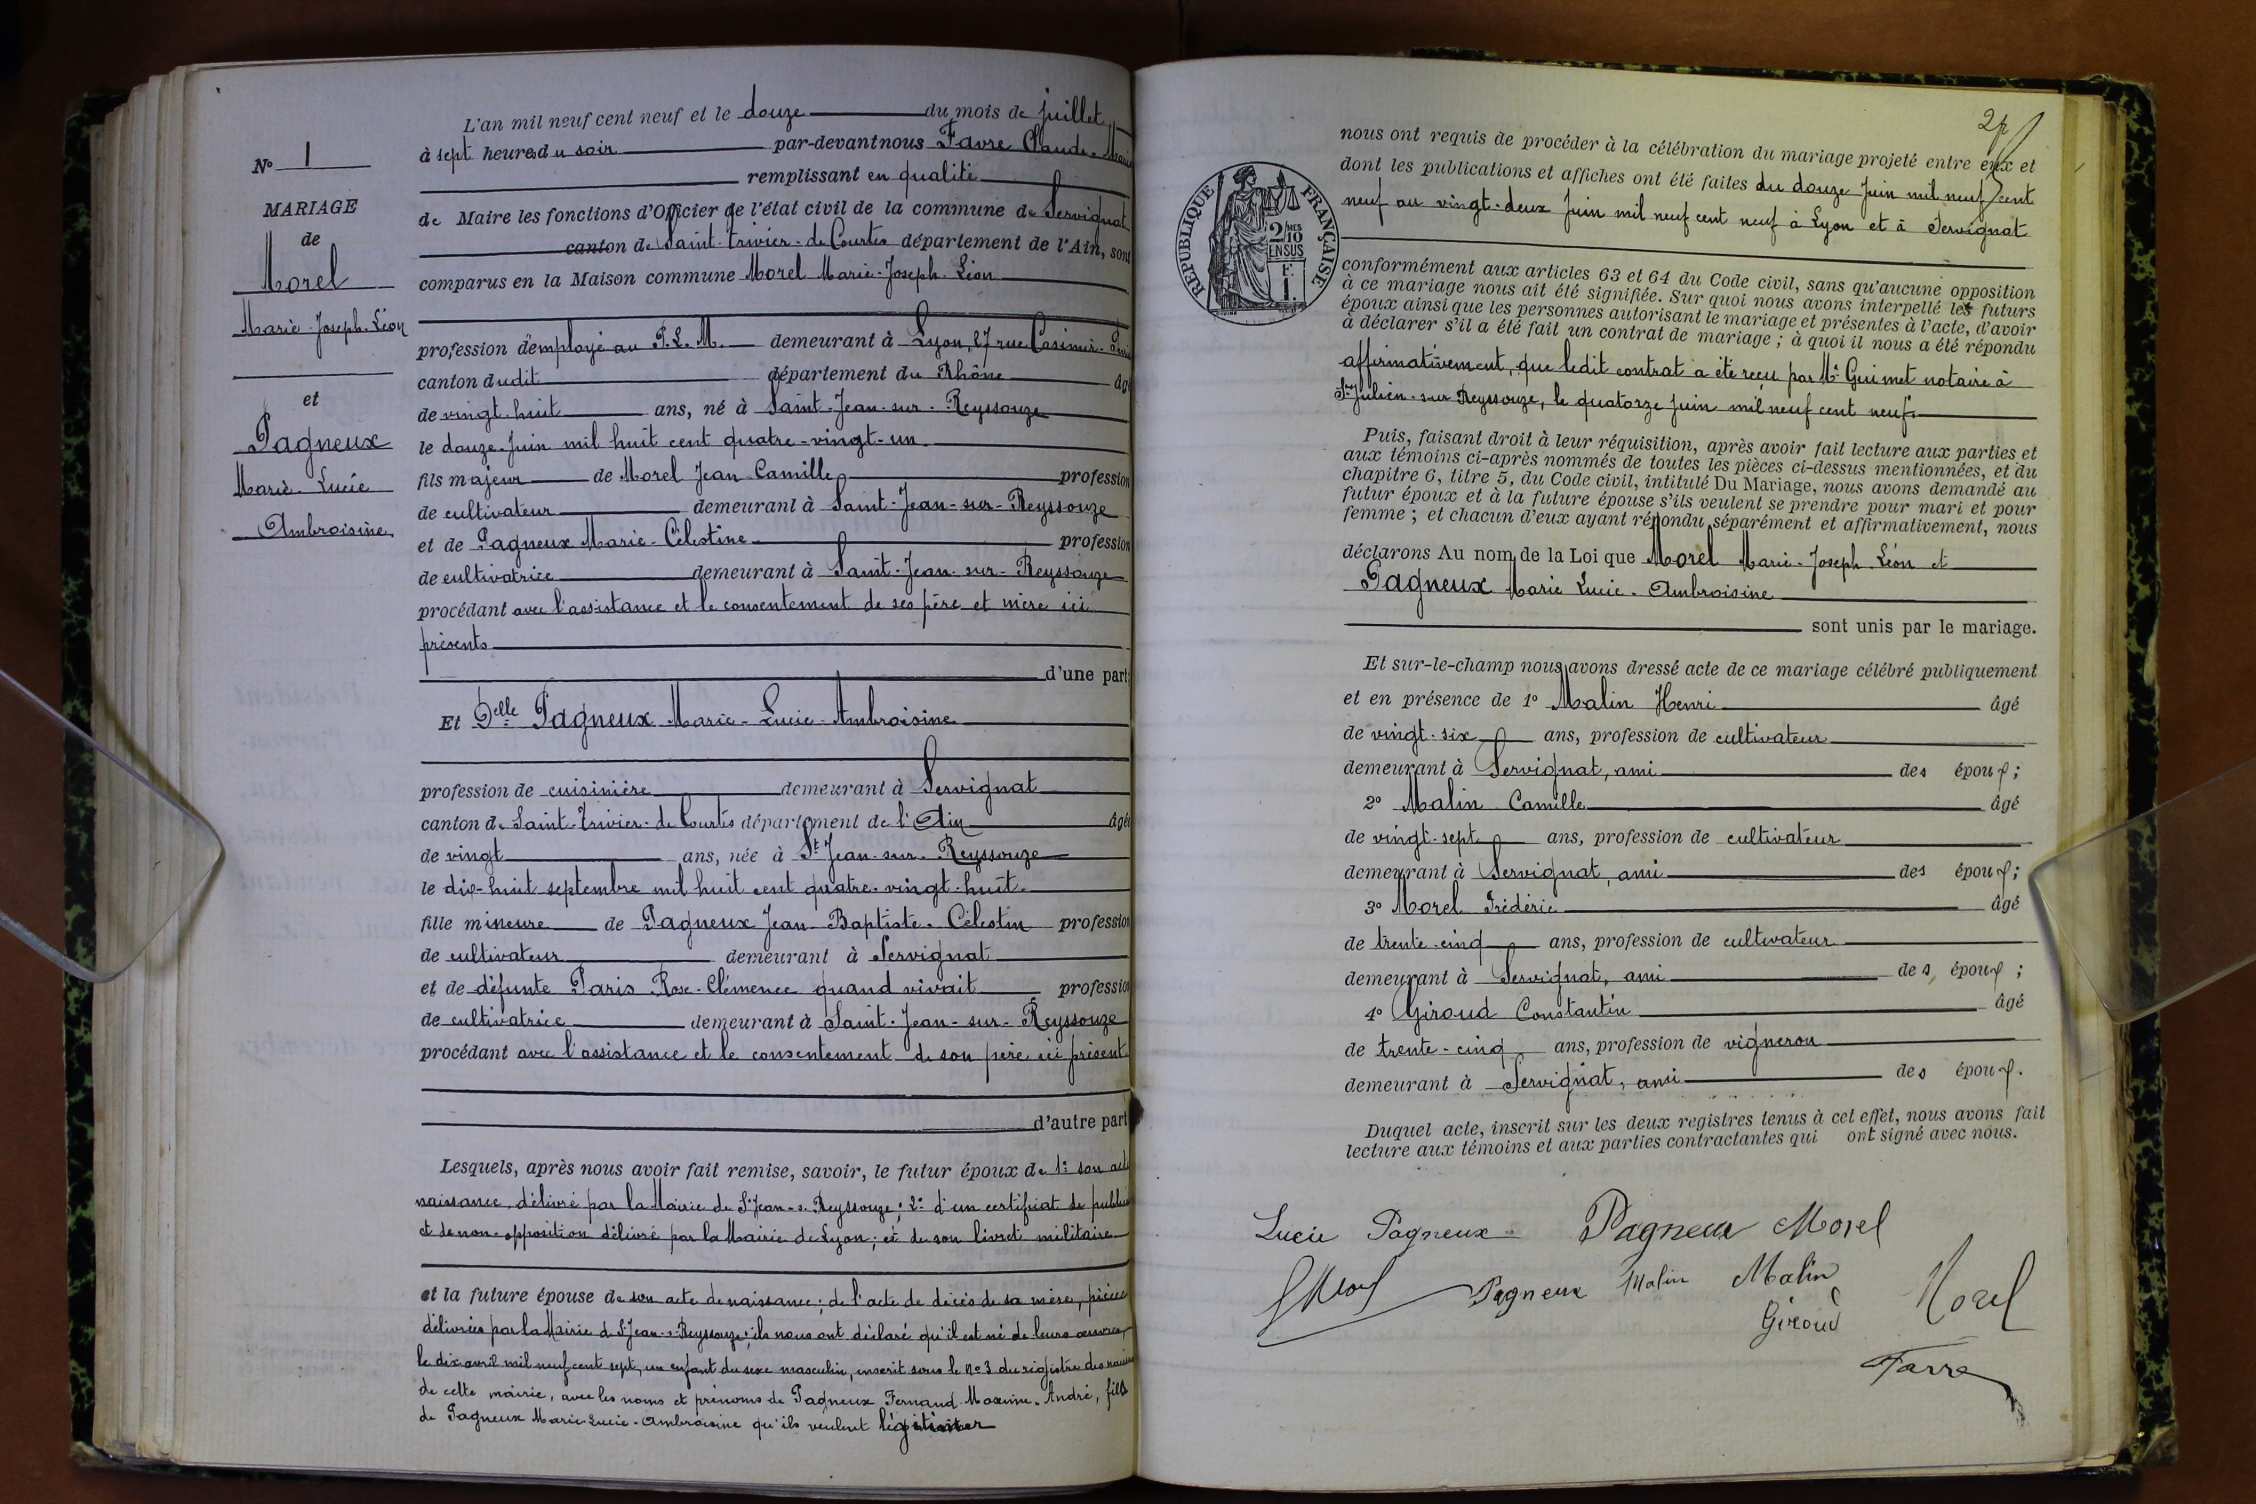 N° 1
MARIAGE
de
Morel
Marie-Joseph-Léon
et
Pagneux
Marie-Lucie
Ambroisine
L'an mil neuf cent neuf et le douze du mois de juillet
à sept heures du soir par-devant nous Favre Claude-Marie
remplissant en qualité
de Maire les fonctions d'Officier de l'état civil de la commune de Servignat
canton de Saint-Trivier-de-Courtes département de l'Ain, sont
comparus en la Maison commune Morel Marie-Joseph-Léon
profession d'employé au P.L.M. demeurant à Lyon, 27 rue Casimir-
canton dudit département du Rhône âgé
de vingt-huit ans, né à Saint-Jean-sur-Reyssouze
le douze juin mil huit cent quatre-vingt-un
fils majeur de Morel Jean Camille profession
de cultivateur demeurant à Saint-Jean-sur-Reyssouze
et de Pagneux Marie-Célestine profession
de cultivatrice demeurant à Saint-Jean-sur-Reyssouze
procédant avec l'assistance et le consentement de ses père et mère ici
présents
d'une part;
Et Delle Pagneux Marie-Lucie-Ambroisine
profession de cuisinière demeurant à Servignat
canton de Saint-Trivier-de-Courtes département de l'Ain âgée
de vingt ans, née à St Jean-sur-Reyssouze
le dix-huit septembre mil huit cent quatre-vingt-huit
fille mineure de Pagneux Jean-Baptiste-Célestin profession
de cultivateur demeurant à Servignat
et de défunte Paris Rose-Clémence quand vivait profession
de cultivatrice demeurant à Saint-Jean-sur-Reyssouze
procédant avec l'assistance et le consentement de son père ici présent
d'autre part
Lesquels, après nous avoir fait remise, savoir, le futur époux de 1° son acte
naissance, délivré par la Mairie de St Jean-s-Reyssouze; 2° d'un certificat de
et de non-opposition délivré par la Mairie de Lyon; et de son livret militaire
et la future épouse de son acte de naissance; de l'acte de décès de sa mère, pièces
délivrées par la Mairie de St Jean-s-Reyssouze; ils nous ont déclaré qu'il est né de leurs œuvres,
le dix avril mil neuf cent sept, un enfant du sexe masculin, inscrit sous le n° 3 du registre des
de cette mairie, avec les noms et prénoms de Pagneux Fernand-Maxime-André, fils
de Pagneux Marie-Lucie-Ambroisine qu'ils veulent légitimer
RÉPUBLIQUE FRANÇAISE
2/10
EN SUS
nous ont requis de procéder à la célébration du mariage projeté entre eux et
dont les publications et affiches ont été faites du douze juin mil neuf cent
neuf au vingt-deux juin mil neuf cent neuf à Lyon et à Servignat
conformément aux articles 63 et 64 du Code civil, sans qu'aucune opposition
à ce mariage nous ait été signifiée. Sur quoi nous avons interpellé les futurs
époux ainsi que les personnes autorisant le mariage et présentes à l'acte, d'avoir
à déclarer s'il a été fait un contrat de mariage; à quoi il nous a été répondu
affirmativement, que ledit contrat a été reçu par Me Guimet notaire à
St Julien-sur-Reyssouze, le quatorze juin mil neuf cent neuf.
Puis, faisant droit à leur réquisition, après avoir fait lecture aux parties et
aux témoins ci-après nommés de toutes les pièces ci-dessus mentionnées, et du
chapitre 6, titre 5, du Code civil, intitulé Du Mariage, nous avons demandé au
futur époux et à la future épouse s'ils veulent se prendre pour mari et pour
femme; et chacun d'eux ayant répondu séparément et affirmativement, nous
déclarons Au nom de la Loi que Morel Marie-Joseph Léon et
Pagneux Marie Lucie-Ambroisine
sont unis par le mariage.
Et sur-le-champ nous avons dressé acte de ce mariage célébré publiquement
et en présence de 1° Malin Henri âgé
de vingt-six ans, profession de cultivateur
demeurant à Servignat, ami des époux;
2° Malin Camille âgé
de vingt-sept ans, profession de cultivateur
demeurant à Servignat, ami des époux;
3° Morel Frédéric âgé
de trente-cinq ans, profession de cultivateur
demeurant à Servignat, ami des époux;
4° Giroud Constantin âgé
de trente-cinq ans, profession de vigneron
demeurant à Servignat, ami des époux.
Duquel acte, inscrit sur les deux registres tenus à cet effet, nous avons fait
lecture aux témoins et aux parties contractantes qui ont signé avec nous.
Lucie Pagneux Pagneux Morel
Pagneux Malin Malin Morel
Giroud
Favre